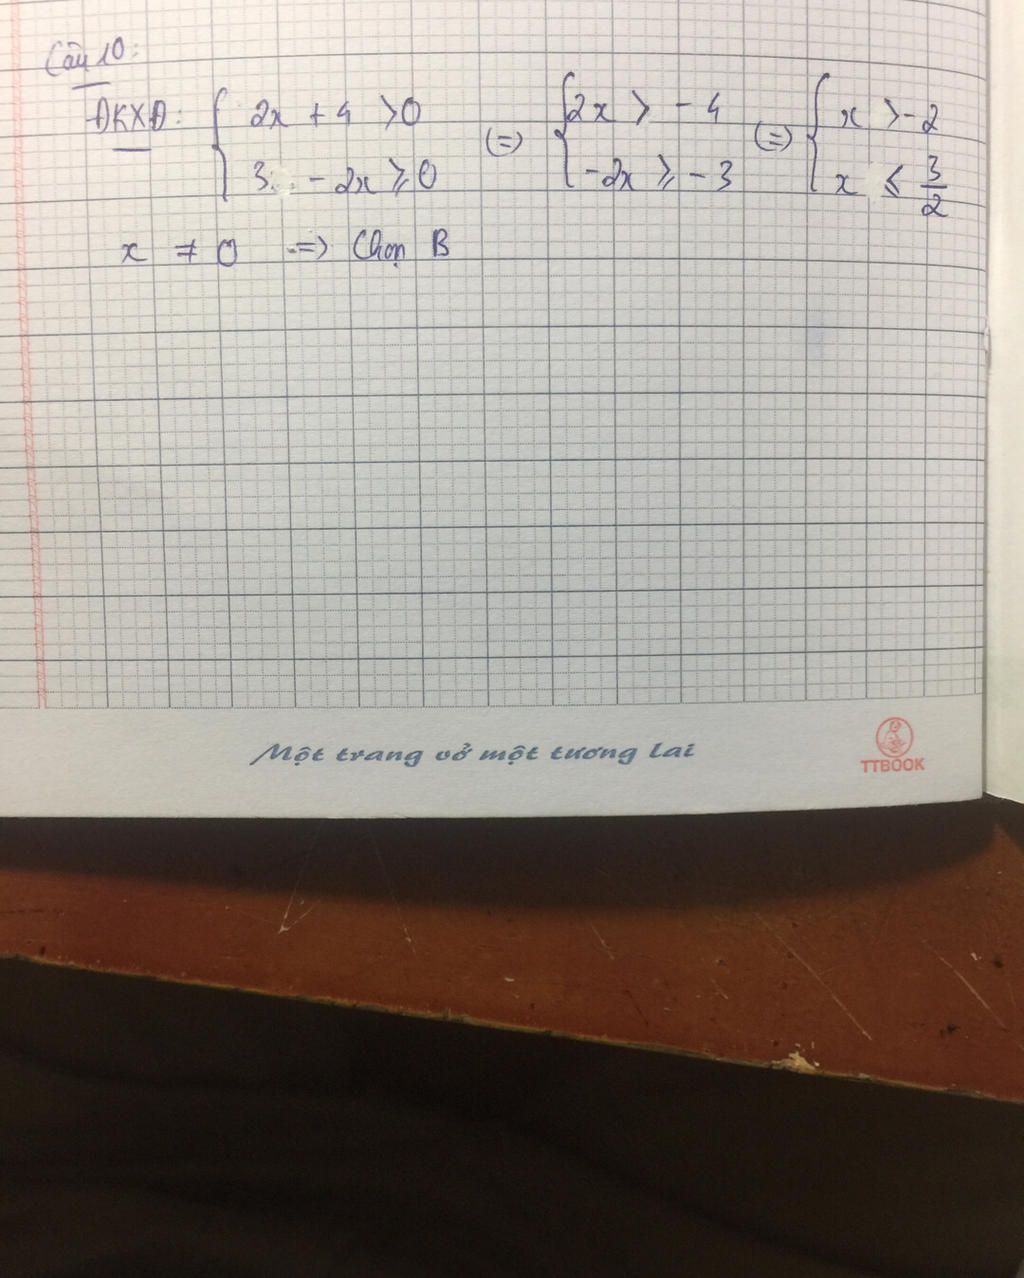 Câu 10:
ĐKXĐ: { 2x + 4 > 0 (=) { 2x > - 4 (=) { x > -2
3 - 2x ⩾ 0 -2x ⩾ - 3 x ⩽ 3/2
x ≠ 0 => Chọn B
Một trang vở một tương lai
TTBOOK